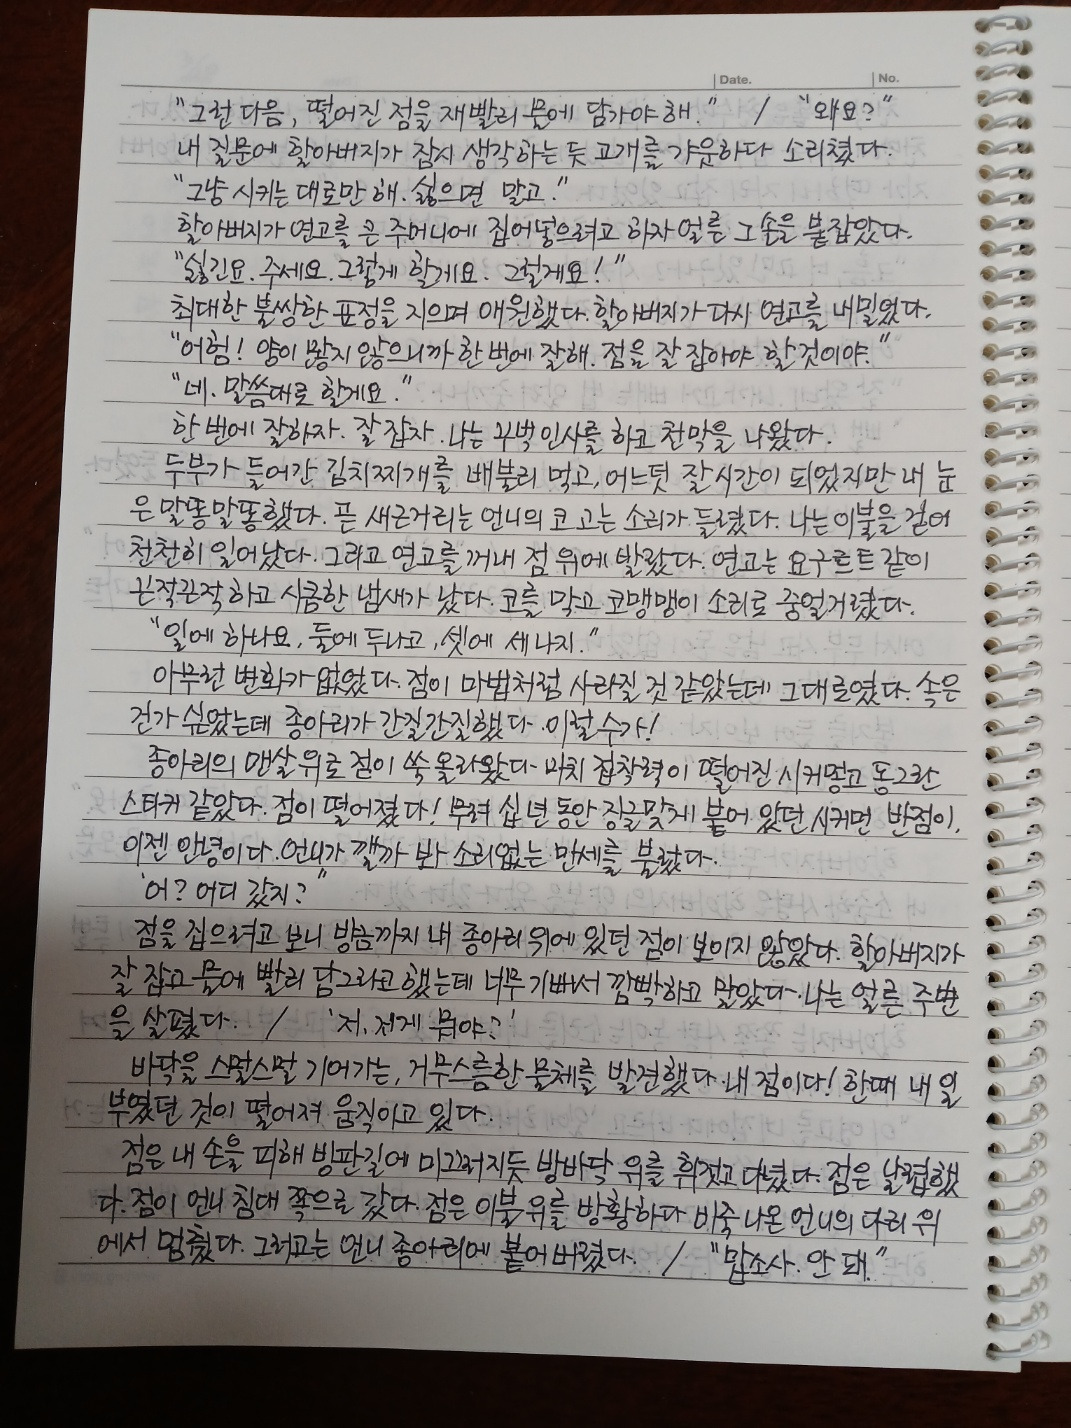 Date. No.
"그런 다음, 떨어진 점을 재빨리 물에 담가야 해." / "왜요?"
내 질문에 할아버지가 잠시 생각하는 듯 고개를 갸웃하다 소리쳤다.
"그냥 시키는 대로만 해. 싫으면 말고."
할아버지가 연고를 큰 주머니에 집어넣으려고 하자 얼른 그 손을 붙잡았다.
"싫긴요. 주세요. 그렇게 할게요. 그럴게요!"
최대한 불쌍한 표정을 지으며 애원했다. 할아버지가 다시 연고를 내밀었다.
"어험! 양이 많지 않으니까 한 번에 잘해. 점을 잘 잡아야 할 것이야."
"네. 말씀대로 할게요."
한 번에 잘하자. 잘 잡자. 나는 꾸벅 인사를 하고 천막을 나왔다.
두부가 들어간 김치찌개를 배불리 먹고, 어느덧 잘 시간이 되었지만 내 눈
은 말똥말똥했다. 곧 새근거리는 언니의 코 고는 소리가 들렸다. 나는 이불을 걷어
천천히 일어났다. 그리고 연고를 꺼내 점 위에 발랐다. 연고는 요구르트 같이
끈적끈적하고 시큼한 냄새가 났다. 코를 막고 코맹맹이 소리로 중얼거렸다.
"일에 하나요, 둘에 두나고, 셋에 세나지."
아무런 변화가 없었다. 점이 마법처럼 사라질 것 같았는데 그대로였다. 속은
건가 싶었는데 종아리가 간질간질했다. 이럴 수가!
종아리의 맨살 위로 점이 쑥 올라왔다. 마치 접착력이 떨어진 시커멓고 동그란
스티커 같았다. 점이 떨어졌다! 무려 십 년 동안 징글맞게 붙어 있던 시커먼 반점이,
이젠 안녕이다. 언니가 깰까 봐 소리없는 만세를 불렀다.
'어? 어디 갔지?"
점을 집으려고 보니 방금까지 내 종아리 위에 있던 점이 보이지 않았다. 할아버지가
잘 잡고 물에 빨리 담그라고 했는데 너무 기뻐서 깜빡하고 말았다. 나는 얼른 주변
을 살폈다. / '저, 저게 뭐야?'
바닥을 스멀스멀 기어가는, 거무스름한 물체를 발견했다. 내 점이다! 한때 내 일
부였던 것이 떨어져 움직이고 있다.
점은 내 손을 피해 빙판길에 미끄러지듯 방바닥 위를 휘젓고 다녔다. 점은 날렵했
다. 점이 언니 침대 쪽으로 갔다. 점은 이불 위를 방황하다 비죽 나온 언니의 다리 위
에서 멈췄다. 그러고는 언니 종아리에 붙어 버렸다. / "맙소사. 안 돼."